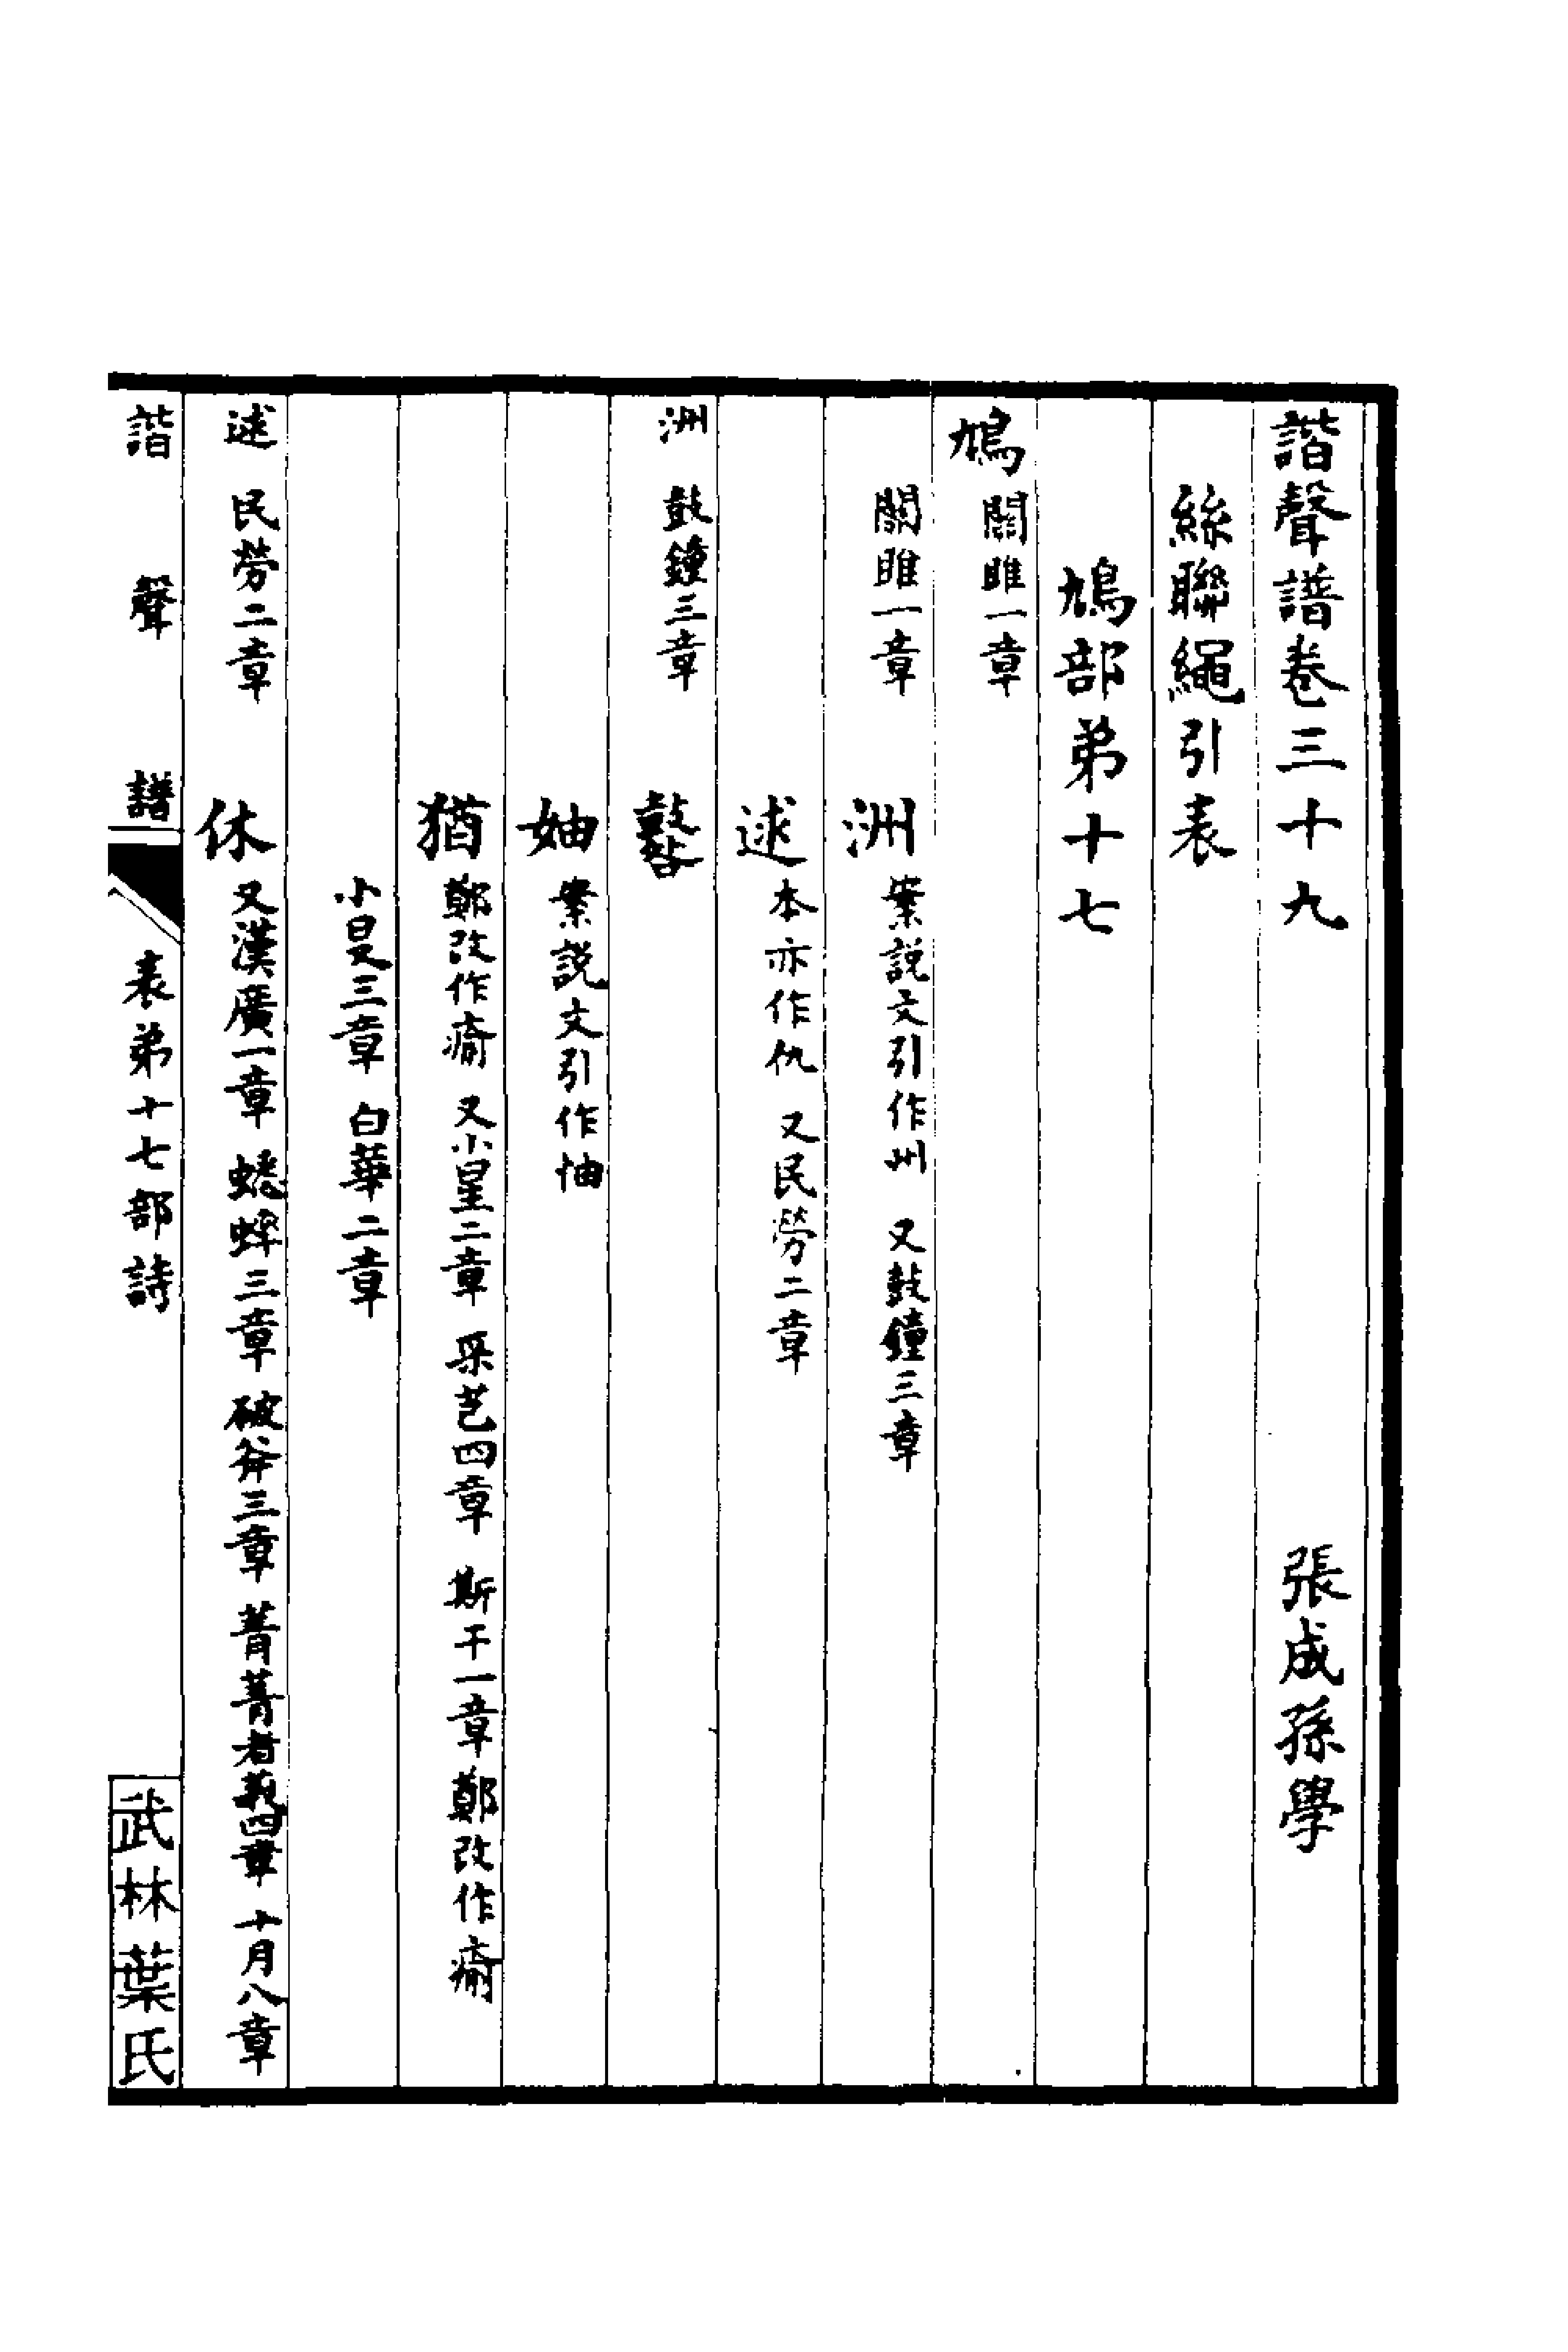 諧聲譜卷三十九 張成孫學
絲聯繩引表
鳩部弟十七
鳩 關雎一章
關雎一章 洲 案説文引作州 又鼓鐘三章
逑 本亦作仇 又民勞二章
洲 鼓鐘三章 鼛
妯 案説文引作怞
猶 鄭改作瘉 又小星二章 采芑四章 斯干一章鄭改作瘉
小旻三章 白華二章
逑 民勞二章 休 又漢廣一章 蟋蟀三章 破斧三章 菁菁者莪四章 十月八章
諧聲譜 表弟十七部詩 武林葉氏